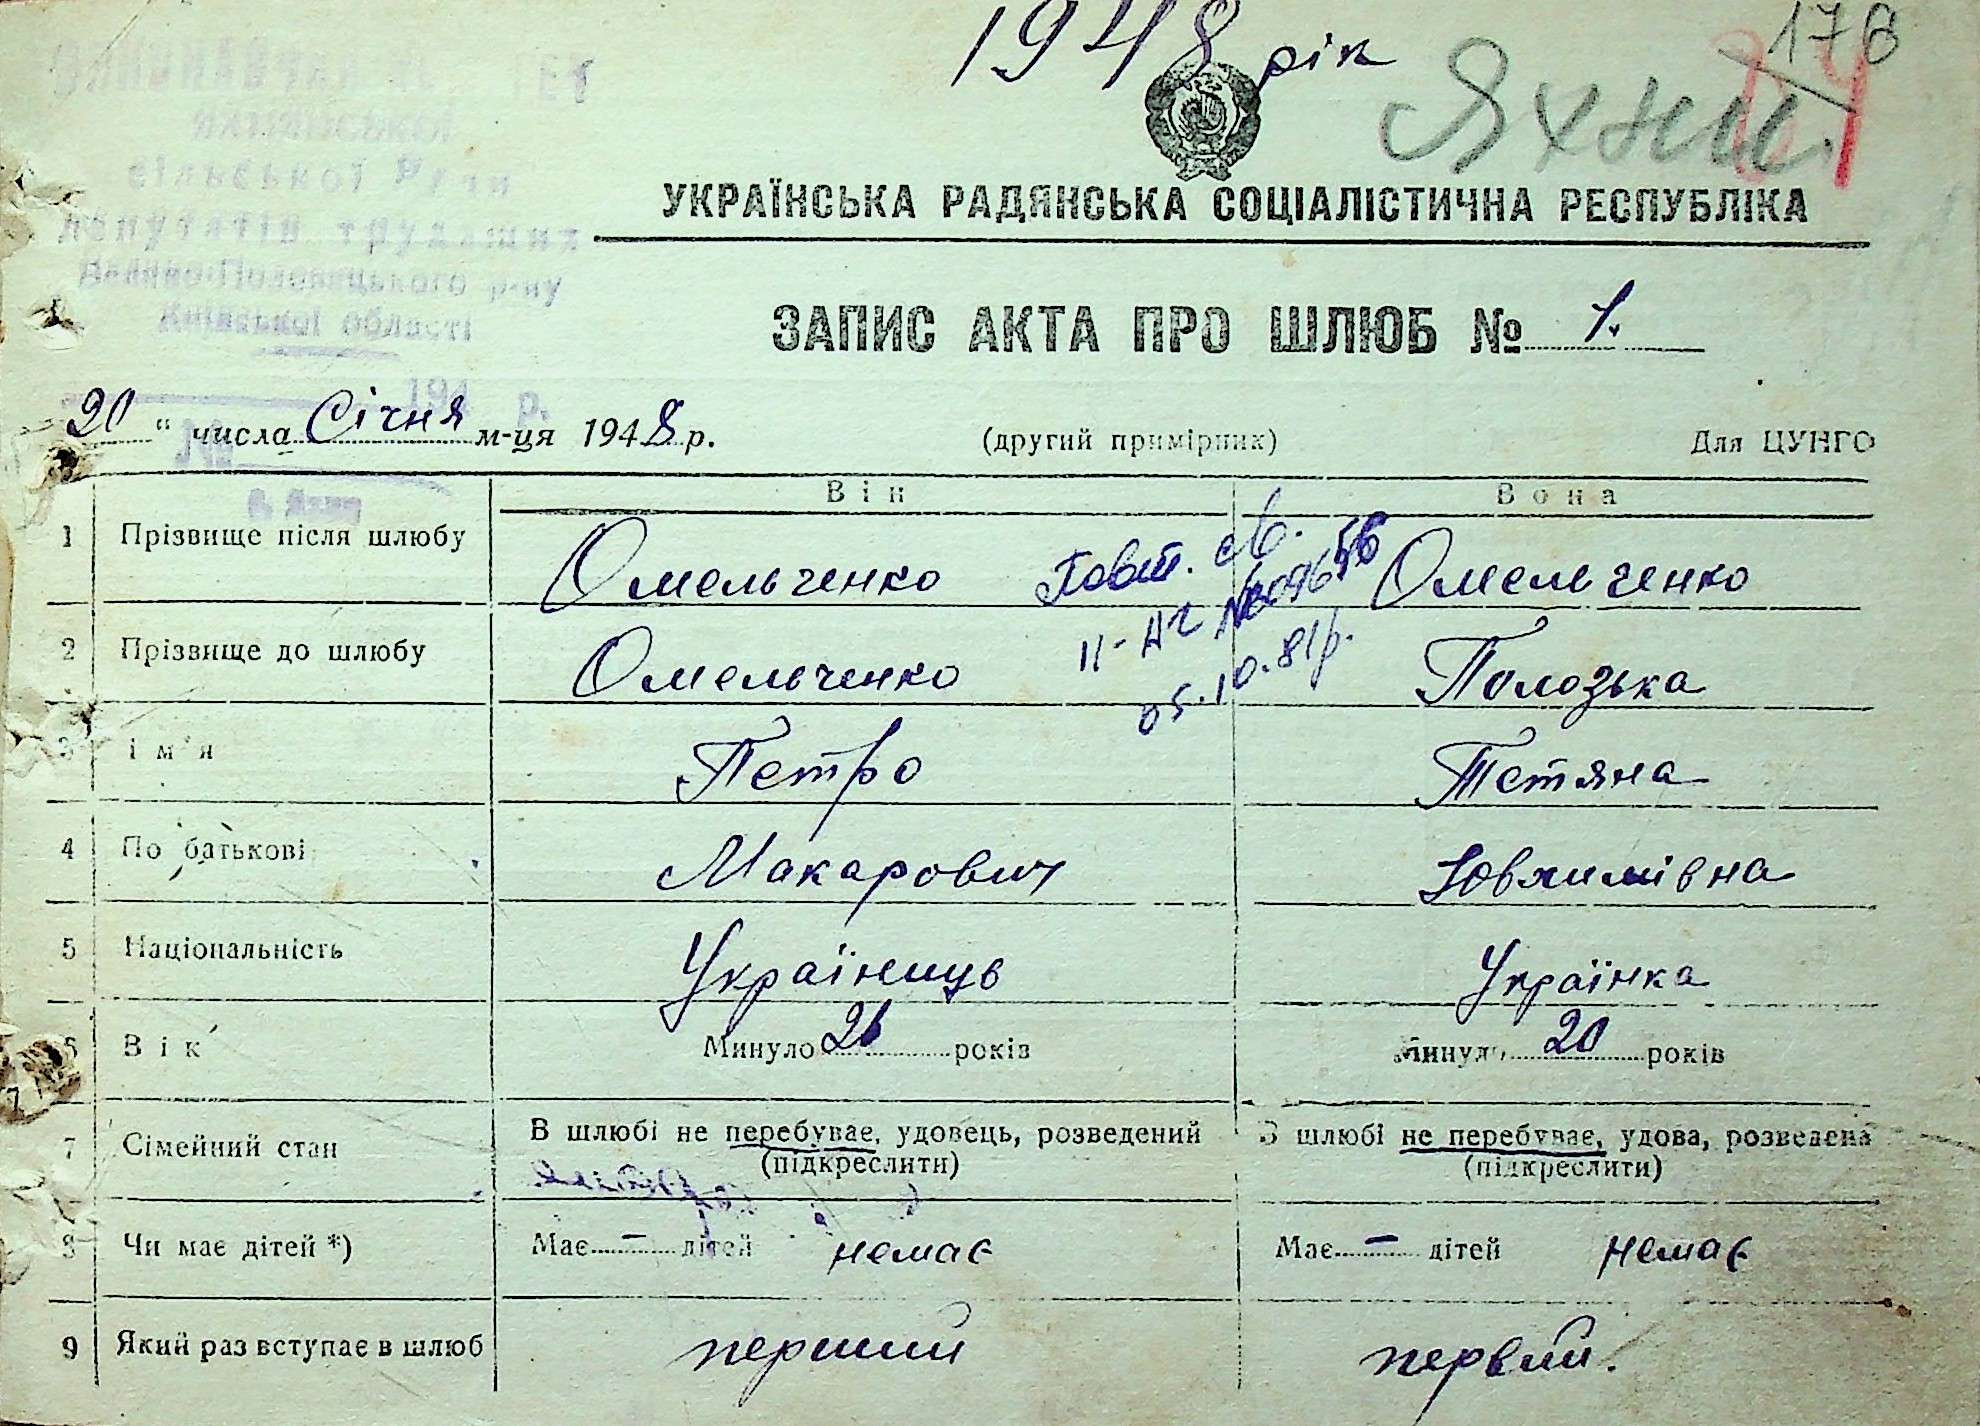 1948 рік
178
Яхни.
сільської Ради
депутатів трудящих
Велико-Половецького р-ну
Київської області
194 р.
№
УКРАЇНСЬКА РАДЯНСЬКА СОЦІАЛІСТИЧНА РЕСПУБЛІКА
ЗАПИС АКТА ПРО ШЛЮБ № 1.
20 " числа Січня м-ця 1948 р. (другий примірник) Для ЦУНГО
Він Вона
1 Прізвище після шлюбу Омельченко Омельченко
Повт. св.
II-АГ №609656
05.10.81р.
2 Прізвище до шлюбу Омельченко Полозька
3 Ім'я Петро Тетяна
4 По батькові Макарович Ювхимівна
5 Національність Українець Українка
6 Вік Минуло 26 років Минуло 20 років
7 Сімейний стан В шлюбі не перебуває, удовець, розведений В шлюбі не перебуває, удова, розведена
(підкреслити) (підкреслити)
8 Чи має дітей *) Має - дітей немає Має - дітей немає
9 Який раз вступає в шлюб перший первий.